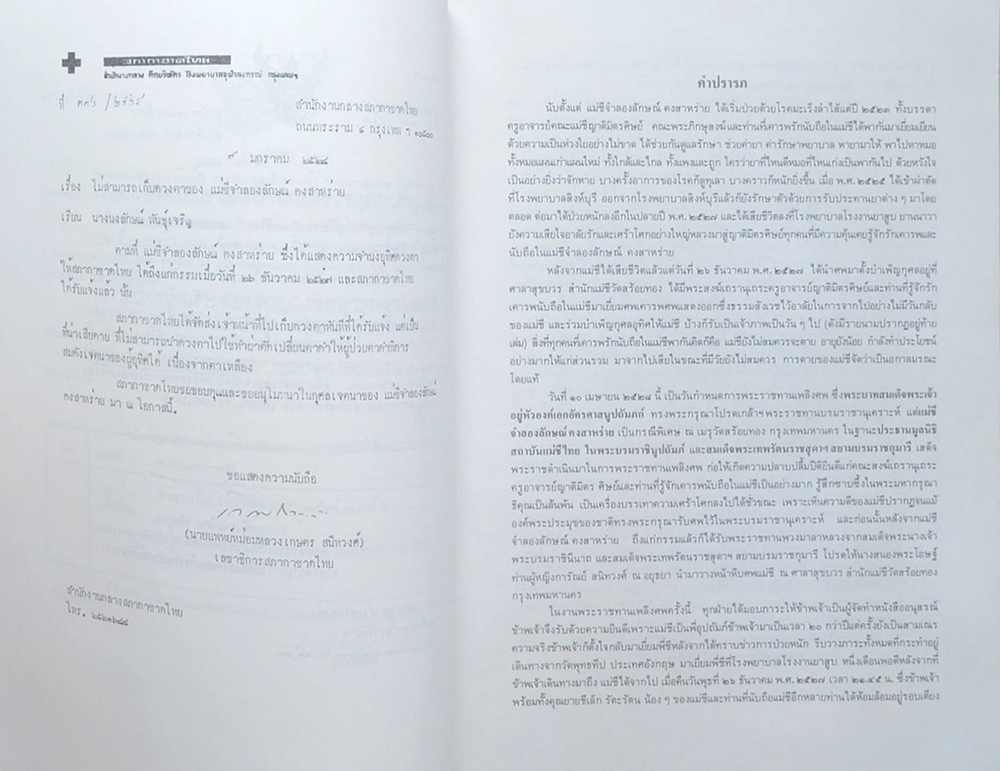 สภากาชาดไทย
สำนักงานกลาง ตึกมหิศรา โรงพยาบาลจุฬาลงกรณ์ กรุงเทพฯ
ที่
สำนักงานกลางสภากาชาดไทย
ถนนพระราม ๔ กรุงเทพ ฯ ๑๐๕๐๐
มกราคม ๒๕๒๘
เรื่อง ไม่สามารถเก็บดวงตาของ แม่ชีจำลองลักษณ์ คงสาหร่าย
เรียน นางนงลักษณ์ พันธุ์เจริญ
ตามที่ แม่ชีจำลองลักษณ์ คงสาหร่าย ซึ่งได้แสดงความจำนงอุทิศดวงตา
ให้สภากาชาดไทย ได้ถึงแก่กรรมเมื่อวันที่ ๒๖ ธันวาคม ๒๕๒๗ และสภากาชาดไทย
ได้รับแจ้งแล้ว นั้น
สภากาชาดไทยได้จัดส่งเจ้าหน้าที่ไปเก็บดวงตาทันทีที่ได้รับแจ้ง แต่เป็น
ที่น่าเสียดาย ที่ไม่สามารถนำดวงตาไปใช้ทำผ่าตัดเปลี่ยนตาดำให้ผู้ป่วยตาดำพิการ
สมดังเจตนาของผู้อุทิศได้ เนื่องจากตาเหลือง
สภากาชาดไทยขอขอบคุณและขออนุโมทนาในกุศลเจตนาของ แม่ชีจำลองลักษณ์
คงสาหร่าย มา ณ โอกาสนี้.
ขอแสดงความนับถือ
(นายแพทย์หม่อมหลวงเกษตร สนิทวงศ์)
เลขาธิการสภากาชาดไทย
สำนักงานกลางสภากาชาดไทย
โทร. ๒๕๒๑๖๘๘
คำปรารภ
นับตั้งแต่ แม่ชีจำลองลักษณ์ คงสาหร่าย ได้เริ่มป่วยด้วยโรคมะเร็งลำไส้แต่ปี ๒๕๒๓ ทั้งบรรดา
ครูอาจารย์คณะแม่ชีญาติมิตรศิษย์ คณะพระภิกษุสงฆ์และท่านที่เคารพรักนับถือในแม่ชีได้พากันมาเยี่ยมเยียน
ด้วยความเป็นห่วงใยอย่างไม่ขาด ได้ช่วยกันดูแลรักษา ช่วยค่ายา ค่ารักษาพยาบาล หายามาให้ พาไปหาหมอ
ทั้งหมอแผนเก่าแผนใหม่ ทั้งใกล้และไกล ทั้งแพงและถูก ใครว่ายาที่ไหนดีหมอที่ไหนเก่งเป็นพากันไป ด้วยหวังใจ
เป็นอย่างยิ่งว่าจักหาย บางครั้งอาการของโรคก็ดูทุเลา บางคราวก็หนักยิ่งขึ้น เมื่อ พ.ศ. ๒๕๒๕ ได้เข้าผ่าตัด
ที่โรงพยาบาลสิงห์บุรี ออกจากโรงพยาบาลสิงห์บุรีแล้วก็ยังรักษาตัวด้วยการรับประทานยาต่าง ๆ มาโดย
ตลอด ต่อมาได้ป่วยหนักลงอีกในปลายปี พ.ศ. ๒๕๒๗ และได้เสียชีวิตลงที่โรงพยาบาลโรงงานยาสูบ ยานนาวา
ยังความเสียใจอาลัยรักและเศร้าโศกอย่างใหญ่หลวงมาสู่ญาติมิตรศิษย์ทุกคนที่มีความคุ้นเคยรู้จักรักเคารพและ
นับถือในแม่ชีจำลองลักษณ์ คงสาหร่าย
หลังจากแม่ชีได้เสียชีวิตแล้วแต่วันที่ ๒๖ ธันวาคม พ.ศ. ๒๕๒๗ ได้นำศพมาตั้งบำเพ็ญกุศลอยู่ที่
ศาลาสุขบวร สำนักแม่ชีวัดสร้อยทอง ได้มีพระสงฆ์เถรานุเถระครูอาจารย์ญาติมิตรศิษย์และท่านที่รู้จักรัก
เคารพนับถือในแม่ชีมาเยี่ยมศพเคารพศพแสดงออกซึ่งธรรมสังเวชไว้อาลัยในการจากไปอย่างไม่มีวันกลับ
ของแม่ชี และร่วมบำเพ็ญกุศลอุทิศให้แม่ชี บ้างก็รับเป็นเจ้าภาพเป็นวัน ๆ ไป (ดังมีรายนามปรากฏอยู่ท้าย
เล่ม) สิ่งที่ทุกคนที่เคารพรักนับถือในแม่ชีพากันคิดก็คือ แม่ชียังไม่สมควรจะตาย อายุยังน้อย กำลังทำประโยชน์
อย่างมากให้แก่ส่วนรวม มาจากไปเสียในขณะที่มีวัยยังไม่สมควร การตายของแม่ชีจัดว่าเป็นอกาลมรณะ
โดยแท้
วันที่ ๑๐ เมษายน ๒๕๒๘ นี้ เป็นวันกำหนดการพระราชทานเพลิงศพ ซึ่งพระบาทสมเด็จพระเจ้า
อยู่หัวองค์เอกอัครศาสนูปถัมภก์ ทรงพระกรุณาโปรดเกล้าฯพระราชทานบรมราชานุเคราะห์ แด่แม่ชี
จำลองลักษณ์ คงสาหร่าย เป็นกรณีพิเศษ ณ เมรุวัดสร้อยทอง กรุงเทพมหานคร ในฐานะประธานมูลนิธิ
สถาบันแม่ชีไทย ในพระบรมราชินูปถัมภ์ และสมเด็จพระเทพรัตนราชสุดาฯ สยามบรมราชกุมารี เสด็จ
พระราชดำเนินมาในการพระราชทานเพลิงศพ ก่อให้เกิดความปลาบปลื้มปีติยินดีแก่คณะสงฆ์เถรานุเถระ
ครูอาจารย์ญาติมิตร ศิษย์และท่านที่รู้จักเคารพนับถือในแม่ชีเป็นอย่างมาก รู้สึกซาบซึ้งในพระมหากรุณา
ธิคุณเป็นล้นพ้น เป็นเครื่องบรรเทาความเศร้าโศกลงไปได้ชั่วขณะ เพราะเห็นความดีของแม่ชีปรากฏจนแม้
องค์พระประมุขของชาติทรงพระกรุณารับศพไว้ในพระบรมราชานุเคราะห์ และก่อนนั้นหลังจากแม่ชี
จำลองลักษณ์ คงสาหร่าย ถึงแก่กรรมแล้วก็ได้รับพระราชทานพวงมาลาหลวงจากสมเด็จพระนางเจ้า
พระบรมราชินีนาถ และสมเด็จพระเทพรัตนราชสุดาฯ สยามบรมราชกุมารี โปรดให้นางสนองพระโอษฐ์
ท่านผู้หญิงการัณย์ สนิทวงศ์ ณ อยุธยา นำมาวางหน้าหีบศพแม่ชี ณ ศาลาสุขบวร สำนักแม่ชีวัดสร้อยทอง
กรุงเทพมหานคร
ในงานพระราชทานเพลิงศพครั้งนี้ ทุกฝ่ายได้มอบภาระให้ข้าพเจ้าเป็นผู้จัดทำหนังสืออนุสรณ์
ข้าพเจ้าจึงรับด้วยความยินดีเพราะแม่ชีเป็นพี่อุปถัมภ์ข้าพเจ้ามาเป็นเวลา ๒๐ กว่าปีแต่ครั้งยังเป็นสามเณร
ความจริงข้าพเจ้าก็ตั้งใจกลับมาเยี่ยมพี่ชีหลังจากได้ทราบข่าวการป่วยหนัก รีบวางภาระทั้งหมดที่กระทำอยู่
เดินทางจากวัดพุทธทีป ประเทศอังกฤษ มาเยี่ยมพี่ชีที่โรงพยาบาลโรงงานยาสูบ หนึ่งเดือนพอดีหลังจากที่
ข้าพเจ้าเดินทางมาถึง แม่ชีได้จากไป เมื่อคืนวันพุธที่ ๒๖ ธันวาคม พ.ศ. ๒๕๒๗ เวลา ๒๑.๔๕ น. ซึ่งข้าพเจ้า
พร้อมทั้งคุณยายชีเล็ก รัตะรัตน น้อง ๆ ของแม่ชีและท่านที่นับถือแม่ชีอีกหลายท่านได้ห้อมล้อมอยู่รอบเตียง